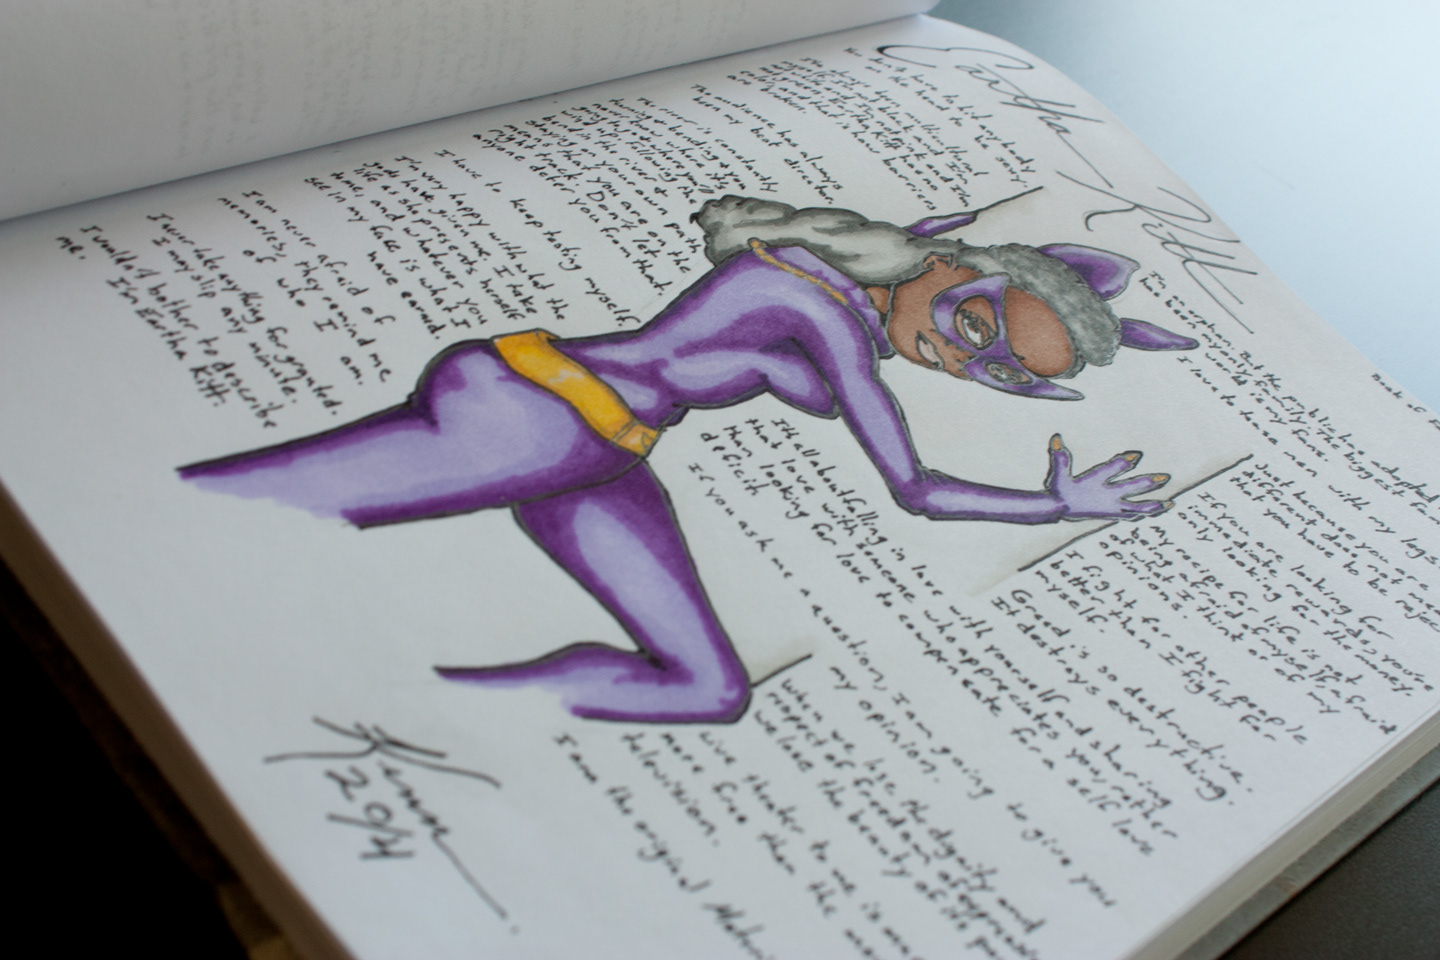 Eartha Kitt
You don't have to hit anybody
on the head to be sexy.
The audience has always
been my best director.
The river is constantly
turning and bending & you
never know where it's
going to go & where you'll
wind up. Following the
bend in the river &
staying on your own path
means that you are on the
right track. Don't let
anyone deter you from that.
I have to keep testing myself.
I'm very happy with what the
gods have given me, I take
life as she presents herself
to me, and whatever you
see in my face is what I
have earned
I am never afraid of
memories, they remind me
of who I am.
I never take anything for granted.
I may slip any minute.
I wouldn't bother to describe
me. I'm Eartha Kitt.
I'm an orphan. But the public has adopted
me
family. The biggest
family in the world is my fans.
I love to tease men with my legs
Just because you are
different does not mean
that you have to be
If you are looking for
immediate rewards, you're
only looking for the money.
My recipe for life is not
being afraid of myself, afraid
of what I think or of my
opinions.
I fight for other people
better than I fight for
myself.
Greed is so destructive.
It destroys everything.
It all about falling in love with yourself and sharing
that love with someone who appreciates you, rather
than looking for love to compensate for a self love
deficit.
If you ask me a question, I am going to give you
my opinion.
When we lose the dignity and
respect of freedom of
we lose the beauty of its
Live theater to me is
more free than the
television.
I am the original
Kevin
2014